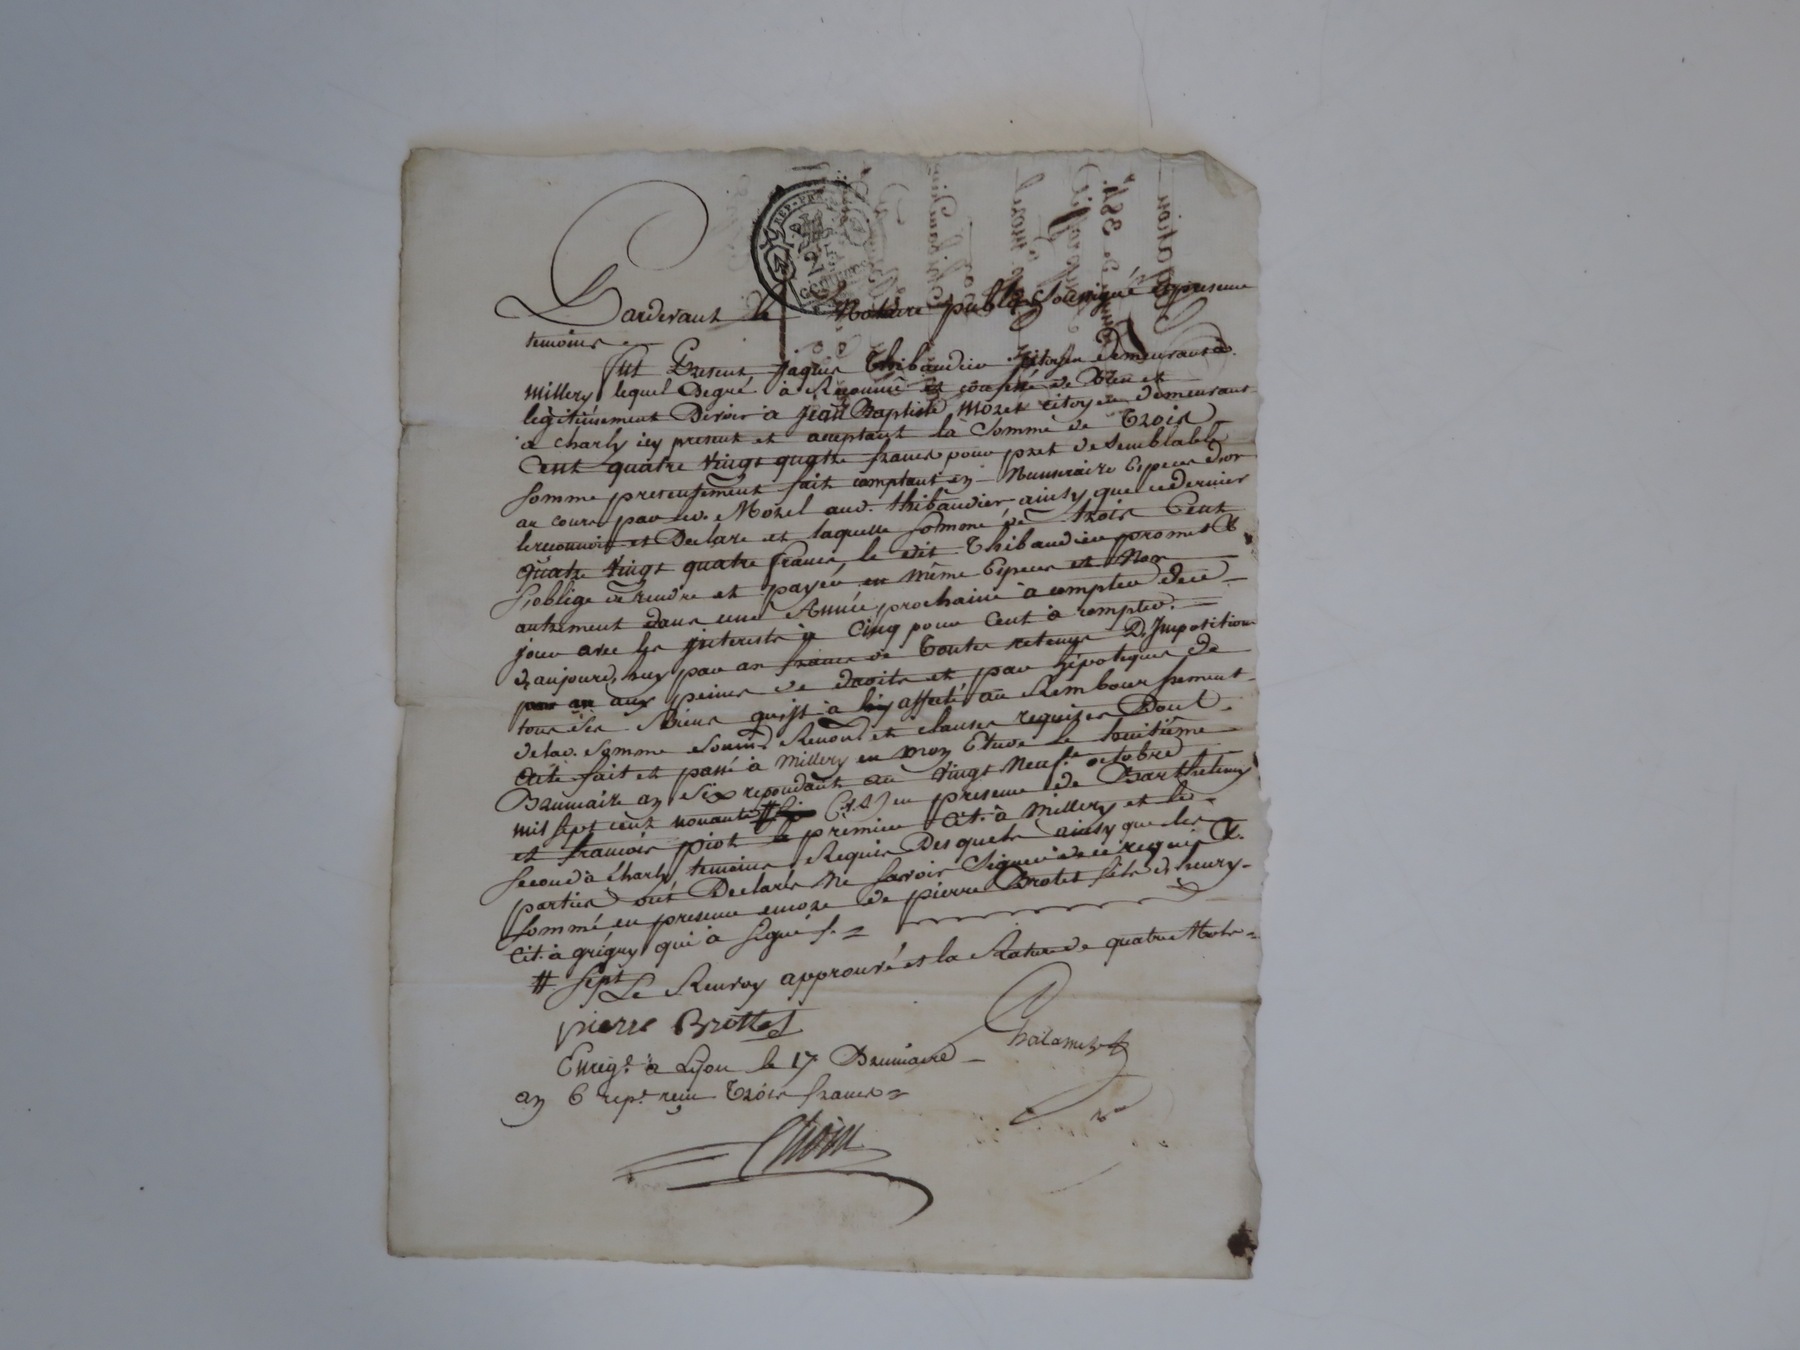 REP. FRA.
Pardevant le Notaire public Soussigné & presence
temoins
fut Present Jaques Thibaudier citoyen demeurant à
Millery lequel Degré à Reconnu et confessé de Bien et
legitiment Devoir à Jean Baptiste Morel citoyen demeurant
à Charly icy present et acceptant la Somme de Trois
Cent quatre vingt quatre francs pour pret de semblable
somme presentement fait comptant en Numeraire Especes d'or
au cours par led. Morel aud. thibaudier ainsy que ce dernier
le reconnoit et Declare et laquelle somme de trois Cent
quatre vingt quatre francs le dit Thibaudier promet &
s'oblige de rendre et payer en même Especes et Non
autrement dans une Année prochaine à compter de ce
jour avec les jnterests à Cinq pour Cent à compter
d'aujourd'huy par an francs de Toutes retenus D'Imposition
par an aux peines de droits et par hipoteques de
tous ses Biens qu'jl à affecté au Rembourssement
de lad. Somme Soum. Renon. et clauses requises Dont
Acte fait et passé à Millery en mon Etude le huitième
Brumaire an Six repondant au vingt Neuf octobre
mil sept cent nonante # en presence de Barthelemy
et francois piot le premier Cit. à Millery et le
second à Charly temoins Requis Desquels ainsy que les
parties ont Declarés Ne Savoir Signer de ce requis &
Sommé en presence encore de pierre Brotet fils d'henry
Cit. à grigny qui à signé ./.
# Sept
Le Renvoy approuvé et la Rature de quatre Mots
pierre Brottet
Enreg.d à Lyon le 17 Brumaire
an 6 rep.n reçu Trois francs